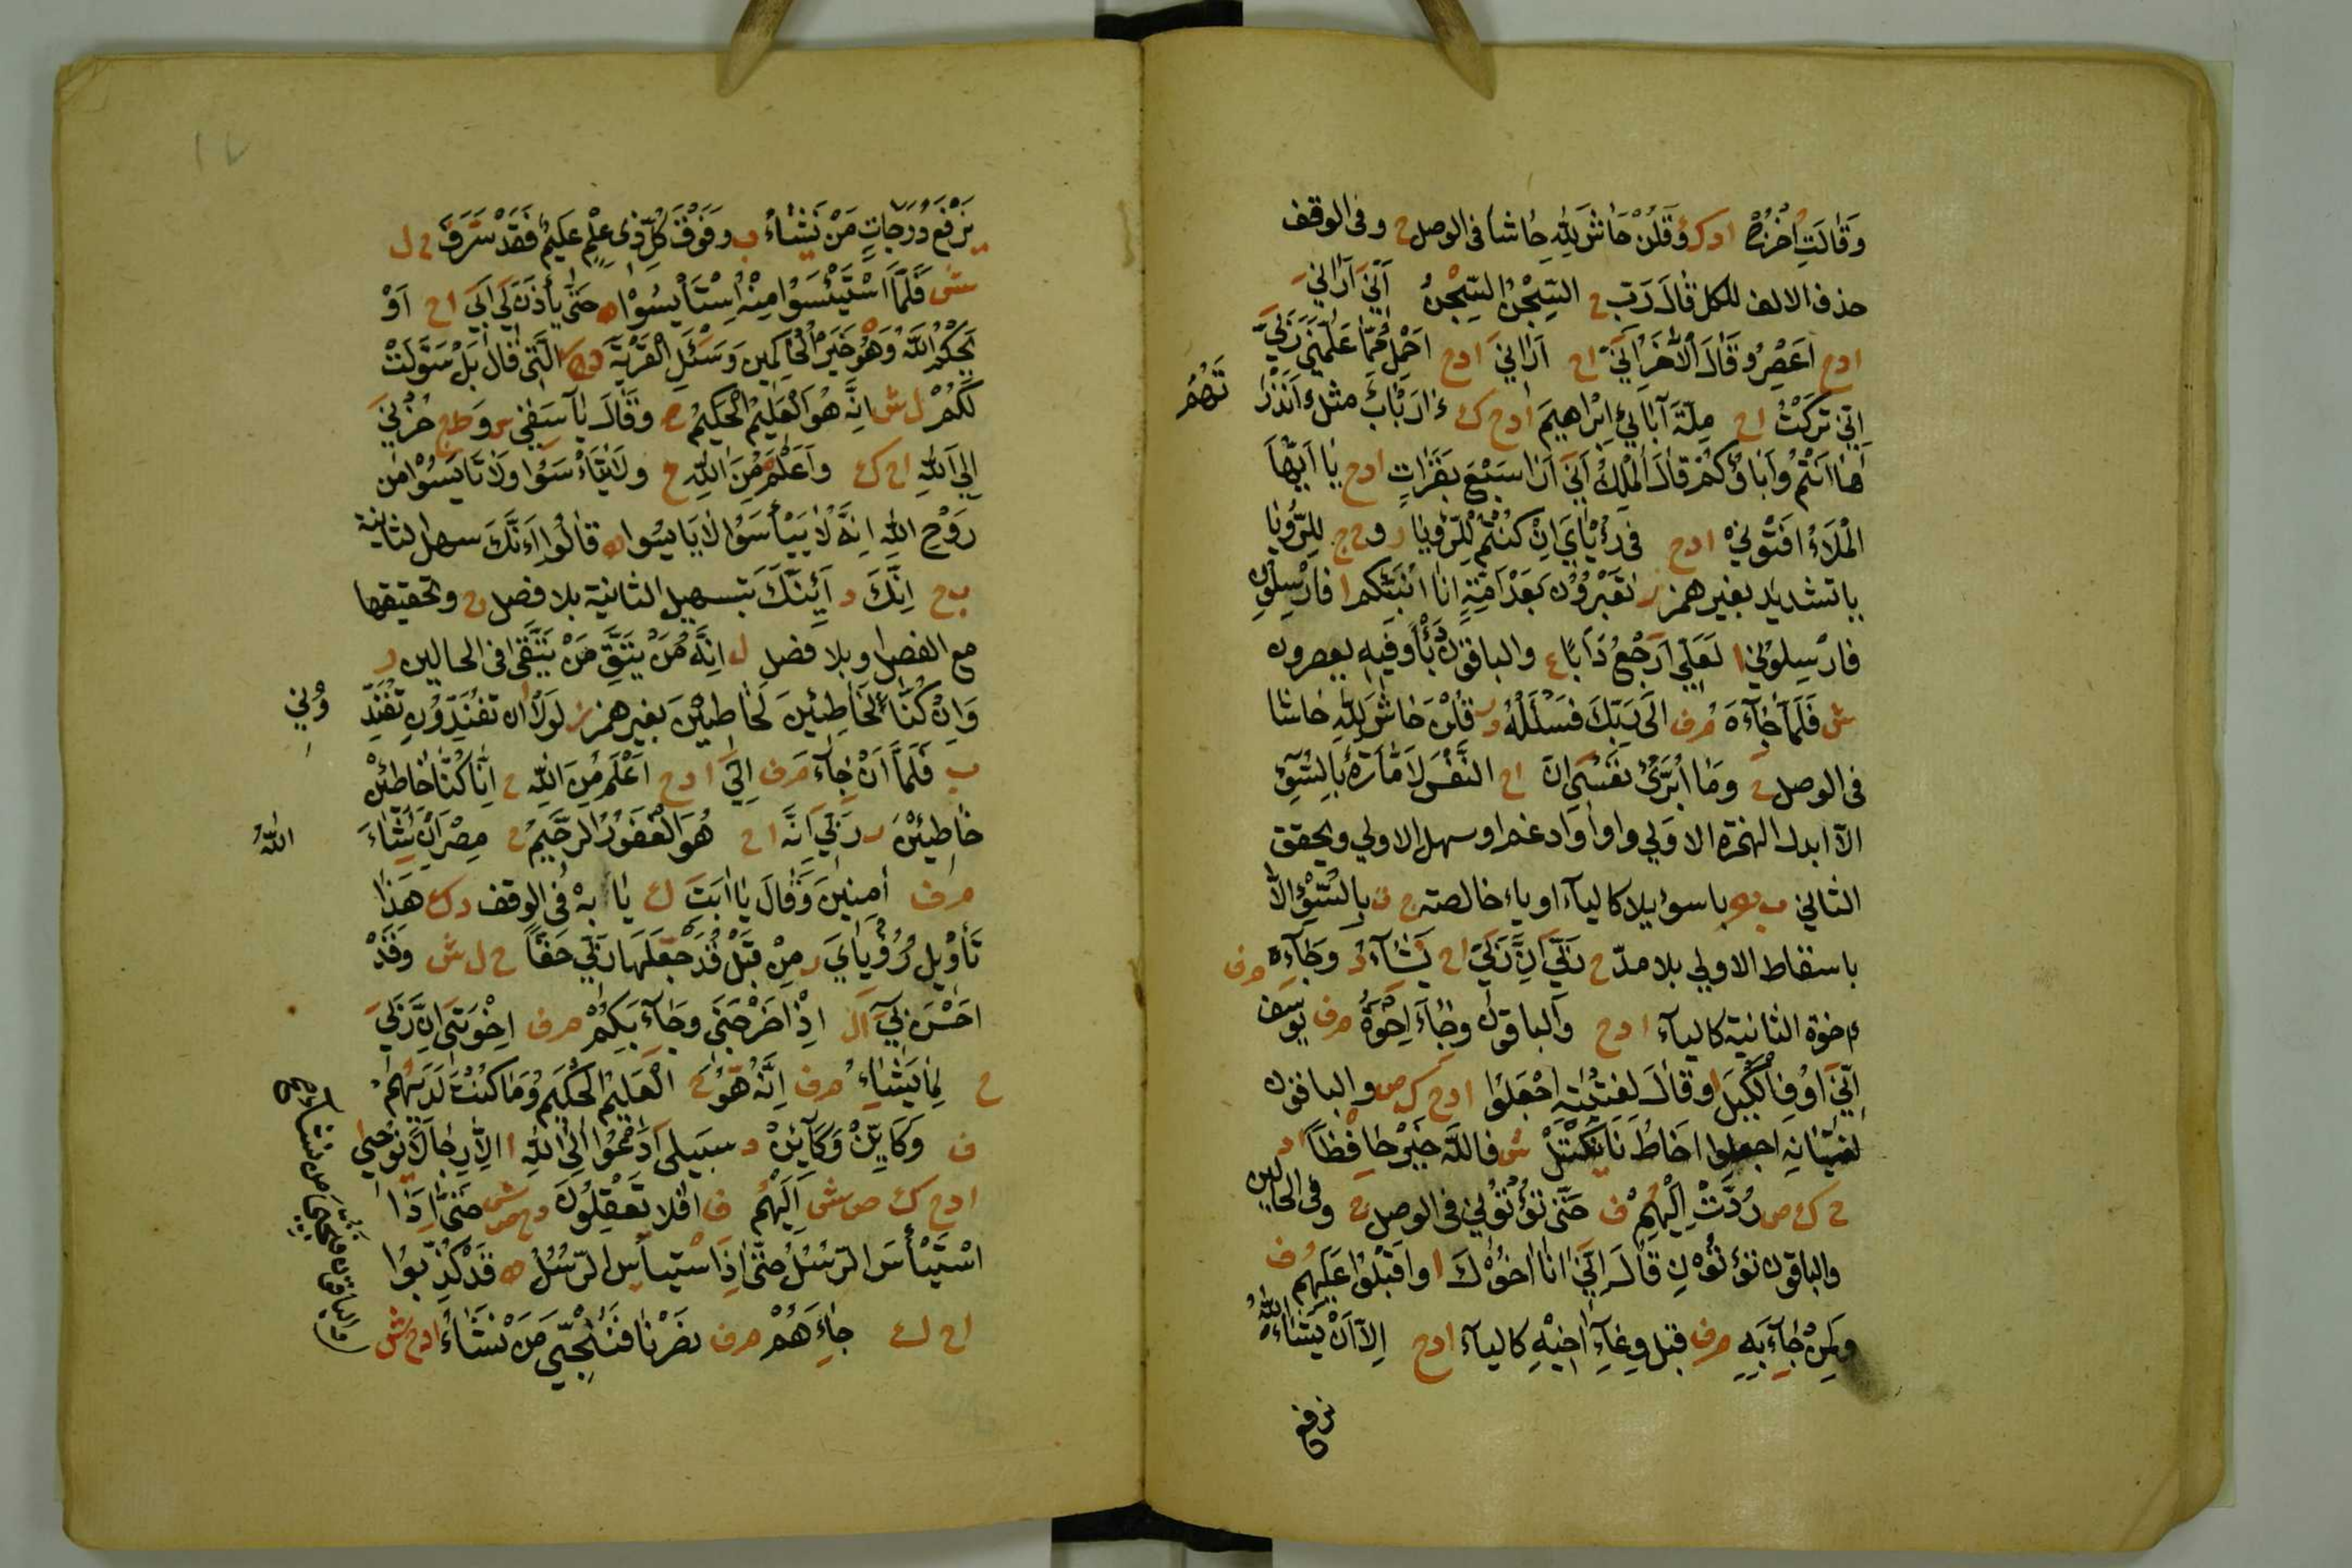 وَقَالَتِ اخْرُجْ ا د ك ر وَقُلْنَ حَاشَ لِلّٰهِ حَاشَا فى الوصل ح وفى الوقف
حذف الالف للكل قَالَ رَبِّ ح السِّجْنُ السِّجْنُ اِنّى اَرَانِى
ادح اَعْصِرُ وَقَالَ الْاٰخَرُ اِنِّى اح اَرَانِى ادح اَحْمِلُ مِمَّا عَلَّمَنِى رَبِّى
اِنِّى تَرَكْتُ اح مِلَّةَ آبَائِى اِبْرَاهِيمَ ادح ك ءَاَرْبَابٌ مثل ءَاَنْذَرْ
تَهُمْ
هَا اَنْتُمْ وَآبَاؤُكُمْ قَالَ الْمَلِكُ اِنِّى اَرَى سَبْعَ بَقَرَاتٍ ادح يَا اَيُّهَا
الْمَلَأُ اَفْتُونِى ادح فِى رُءْيَاىَ اِنْ كُنْتُمْ لِلرُّوْيَا ر وح ج لِلرُّيَّا
باتشديد بغير همز ر تَعْبُرُوْنَ بَعْدَ اُمَّةٍ اَنَا اُنَبِّئُكُمْ ا فَاَرْسِلُونِ
فَاَرْسِلُوْنِى ا لَعَلِّى اَرْجِعُ دَاَبًا ع والباقون دَأْبًا وَفِيهِ يعصرون
ش فَلَمَّا جَآءَهُ م ف اِلَى رَبِّكَ فَسْئَلْهُ در قُلْنَ حَاشَ لِلّٰهِ حَاشَا
فى الوصل ح وَمَا اُبَرِّئُ نَفْسِى اِنَّ اح النَّفْسَ لَاَمَّارَةٌ بِالسُّوْءِ
اِلَّا ابدل الهمزة الاولى واوا وادغم او سهل الاولى ويحقق
الثانى ب باسوء يلا كالياء او ياء خالصته ج ز بِالسُّوْءِ اِلَّا
باسقاط الاولى بلا مدّ ح رَبِّى اِنَّ رَبِّى اح يَشَآءُ د وَجَآءَ م ف
اِخْوَة الثانية كالياء ادح والباقون وَجَآءَ اِخْوَةُ م ف يُوسُفَ
اَنِّى اُوْفِ الْكَيْلَ ا وَقَالَ لِفِتْيَتِهِ اجْعَلُوا ادح ك ص والباقون
لِفِتْيَانِهِ اجعلوا اَخَانَا نَكْتَلْ ش فَاللّٰهُ خَيْرٌ حَافِظًا اد
ح ك ص رُدَّتْ اِلَيْهِمْ ف حَتّٰى تُؤْتُوْنِى فى الوصل ح وفى الحالين د
والباقون تُؤْتُوْنِ قَالَ اِنِّى اَنَا اَخُوْكَ ا وَاَقْبَلُوْا عَلَيْهِمْ ف
وَلِمَنْ جَآءَ بِهِ م ف قَبْلَ وِعَآءِ اَخِيْهِ كالياء ادح اِلَّا اَنْ يَشَآءَ اللّٰهُ
نرفع
نَرْفَعُ دَرَجَاتٍ مَنْ نَشَاءُ ب وَفَوْقَ كُلِّ ذِى عِلْمٍ عَلِيمٌ فَقَدْ سَرَقَ ح ل
ش فَلَمَّا اسْتَيْئَسُوا مِنْهُ اِسْتَايَسُوْا ه حَتّٰى يَأْذَنَ لِى اَبِى اح اَوْ
يَحْكُمَ اللّٰهُ وَهُوَ خَيْرُ الْحَاكِمِينَ وَسْئَلِ الْقَرْيَةَ در الَّتِى قَالَ بَلْ سَوَّلَتْ
لَكُمْ ل ش اِنَّهُ هُوَ الْعَلِيمُ الْحَكِيمُ ح وَقَالَ يَا اَسَفٰى س وَ ط ج حُزْنِى
اِلَى اللّٰهِ اح ك وَاَعْلَمُ مِنَ اللّٰهِ ح وَلَا تَيْاَسُوا وَلَا تَايَسُوْا مِنْ
رَوْحِ اللّٰهِ اِنَّهُ لَا يَيْأَسُ وَلَا يَايَسُوا ه قَالُوا اَءِنَّكَ سهل الثانية
ب ح اِنَّكَ د اَئِنَّكَ بتسهيل الثانية بلا فصل ح وتحقيقها
مع الفصل وبلا فصل ل اِنَّهُ مَنْ يَتَّقِ مَنْ يَتَّقِى فى الحالين ر
وَاِنْ كُنَّا لَخَاطِئِينَ لَخَاطِيْنَ بغير همز ز لَوْلَا اَنْ تُفَنِّدُوْنِ تُفَنِّدُ
وْنِى
ب فَلَمَّا اَنْ جَآءَ م ف اِنِّى ادح اَعْلَمُ مِنَ اللّٰهِ ح اِنَّا كُنَّا خَاطِئِينَ
خَاطِيْنَ ر رَبِّى اِنَّهُ اح هُوَ الْغَفُورُ الرَّحِيمُ ح مِصْرَ اِنْ شَاءَ
اللّٰهُ
م ف اٰمِنِينَ وَقَالَ يَا اَبَتِ ك يَا اَبَهْ فى الوقف د ك هَذَا
تَأْوِيلُ رُؤْيَاىَ ر مِنْ قَبْلُ قَدْ جَعَلَهَا رَبِّى حَقًّا ح ل ش وَقَدْ
اَحْسَنَ بِىَ ا ل اِذْ اَخْرَجَنِى وَجَآءَ بِكُمْ م ف اِخْوَتِى اِنَّ رَبِّى
ح لِمَا يَشَاءُ م ف اِنَّهُ هُوَ ح الْعَلِيمُ الْحَكِيمُ وَمَا كُنْتَ لَدَيْهِمْ
ف وَكَاَيِّنْ وَكَآئِنْ د سَبِيلِى اَدْعُوْا اِلَى اللّٰهِ ا اِلَّا رِجَالًا نُوْحِى
ادح ك ص ش اِلَيْهِمْ ف اَفَلَا تَعْقِلُوْنَ د ح ص ش حَتّٰى اِذَا
اسْتَيْأَسَ الرُّسُلُ حَتّٰى اِذَا اسْتَيَاسَ الرُّسُلُ ه قَدْ كُذِّبُوْا
اح ك جَآءَهُمْ م ف نَصْرُنَا فَنُنْجِى مَنْ نَشَاءُ ادح ش